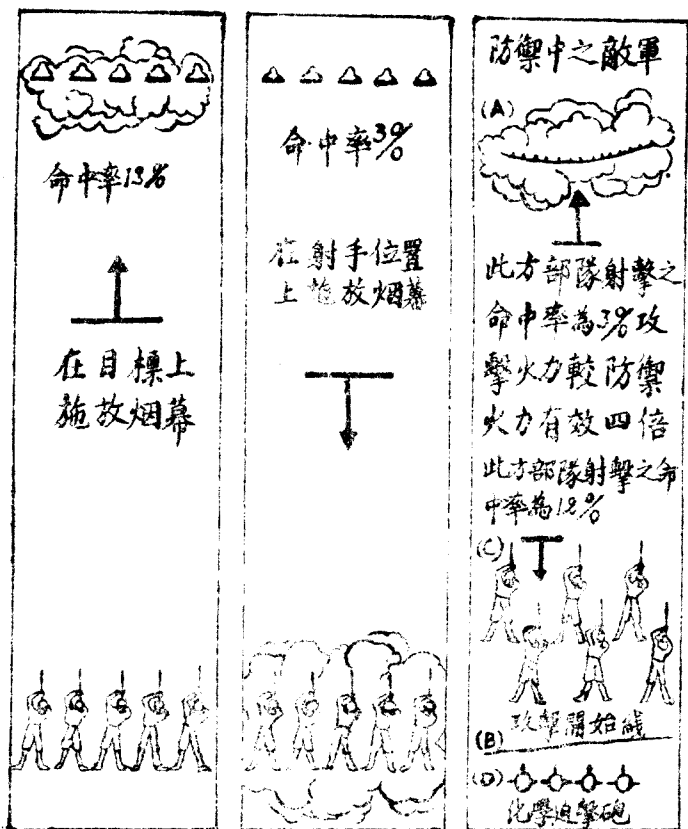 命中率13%
在目標上
施放烟幕
命中率3%
在射手位置
上施放烟幕
防禦中之敵軍
(A)
此方部隊射擊之
命中率為3%攻
擊火力較防禦
火力有效四倍
此方部隊射擊之命
中率為12%
(C)
(B) 攻擊開始線
(D)
化學迫擊砲